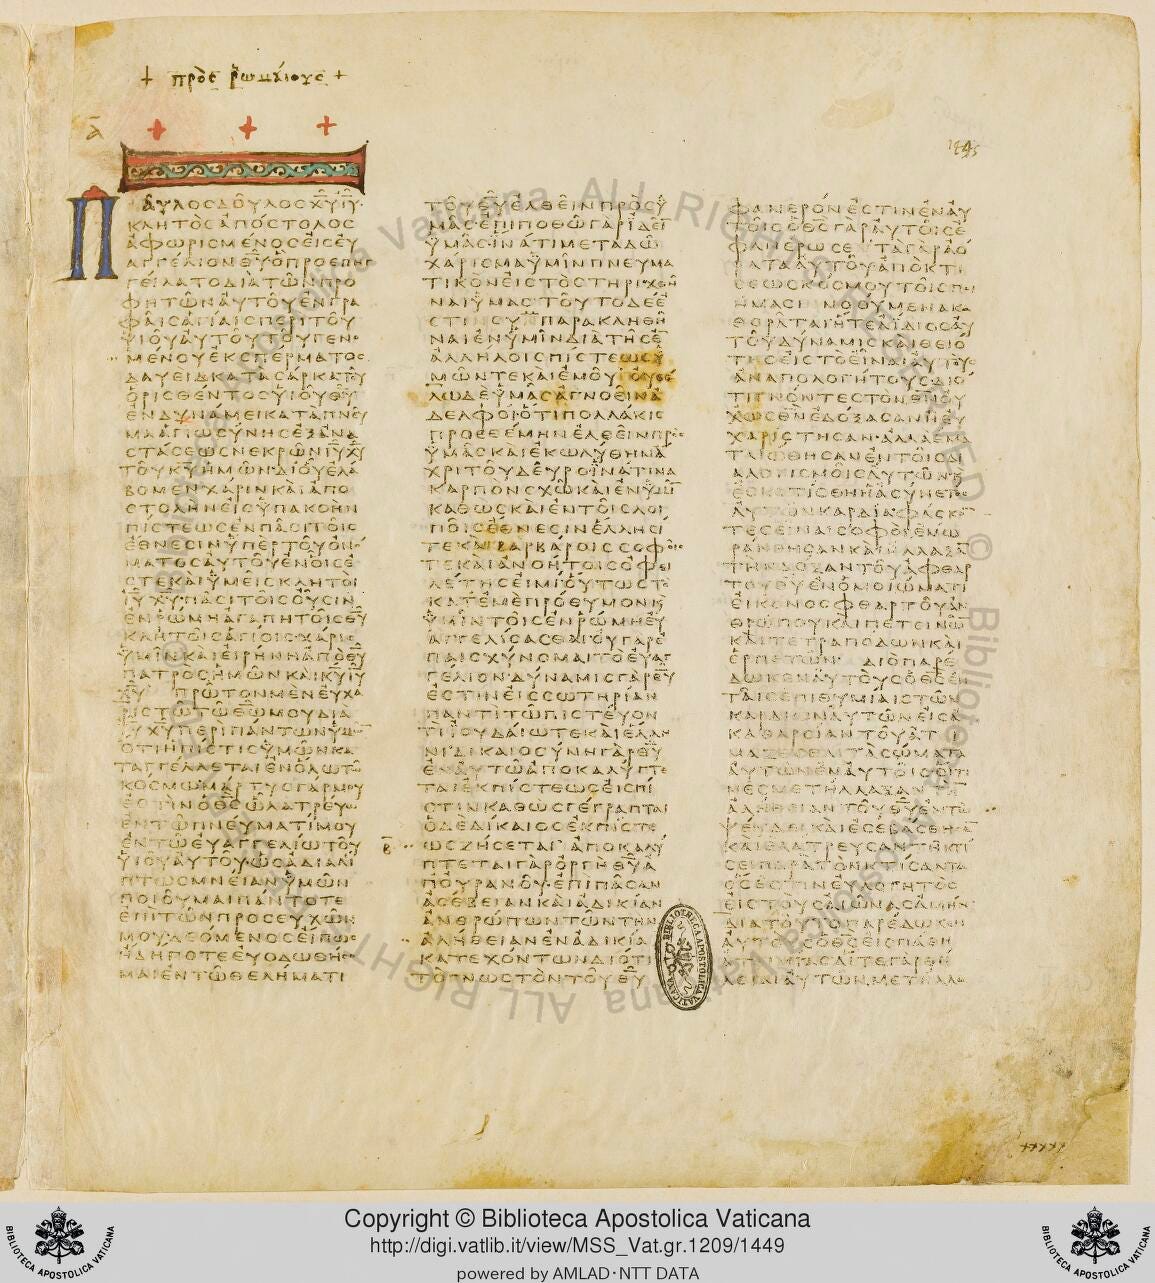 + πρὸς ῥωμαίους +
Α
ΠΑΥΛΟϹΔΟΥΛΟϹΧ̅Υ̅Ι̅Υ̅
ΚΛΗΤΟϹΑΠΟϹΤΟΛΟϹ
ΑΦΩΡΙϹΜΕΝΟϹΕΙϹΕΥ
ΑΓΓΕΛΙΟΝΘ̅Υ̅ΟΠΡΟΕΠΗΓ
ΓΕΙΛΑΤΟΔΙΑΤΩΝΠΡΟ
ΦΗΤΩΝΑΥΤΟΥΕΝΓΡΑ
ΦΑΙϹΑΓΙΑΙϹΠΕΡΙΤΟΥ
ΥΙΟΥΑΥΤΟΥΤΟΥΓΕΝΟ
ΜΕΝΟΥΕΚϹΠΕΡΜΑΤΟϹ
ΔΑΥΕΙΔΚΑΤΑϹΑΡΚΑΤΟΥ
ΟΡΙϹΘΕΝΤΟϹΥΙΟΥΘ̅Υ̅
ΕΝΔΥΝΑΜΕΙΚΑΤΑΠΝΕΥ
ΜΑΑΓΙΩϹΥΝΗϹΕΞΑΝΑ
ϹΤΑϹΕΩϹΝΕΚΡΩΝΙ̅Υ̅Χ̅Υ̅
ΤΟΥΚ̅Υ̅ΗΜΩΝΔΙΟΥΕΛΑ
ΒΟΜΕΝΧΑΡΙΝΚΑΙΑΠΟ
ϹΤΟΛΗΝΕΙϹΥΠΑΚΟΗΝ
ΠΙϹΤΕΩϹΕΝΠΑϹΙΤΟΙϹ
ΕΘΝΕϹΙΝΥΠΕΡΤΟΥΟΝΟ
ΜΑΤΟϹΑΥΤΟΥΕΝΟΙϹΕ
ϹΤΕΚΑΙΥΜΕΙϹΚΛΗΤΟΙ
Ι̅Υ̅Χ̅Υ̅ΠΑϹΙΤΟΙϹΟΥϹΙΝ
ΕΝΡΩΜΗΑΓΑΠΗΤΟΙϹΘ̅Υ̅
ΚΛΗΤΟΙϹΑΓΙΟΙϹΧΑΡΙϹ
ΥΜΙΝΚΑΙΕΙΡΗΝΗΑΠΟΘ̅Υ̅
ΠΑΤΡΟϹΗΜΩΝΚΑΙΚ̅Υ̅Ι̅Υ̅
Χ̅Υ̅ ΠΡΩΤΟΝΜΕΝΕΥΧΑ
ΡΙϹΤΩΤΩΘ̅Ω̅ΜΟΥΔΙΑ
Ι̅Υ̅Χ̅Υ̅ΠΕΡΙΠΑΝΤΩΝΥΜΩ̅
ΟΤΙΗΠΙϹΤΙϹΥΜΩΝΚΑ
ΤΑΓΓΕΛΛΕΤΑΙΕΝΟΛΩΤΩ
ΚΟϹΜΩΜΑΡΤΥϹΓΑΡΜΟΥ
ΕϹΤΙΝΟΘ̅Ϲ̅ΩΛΑΤΡΕΥΩ
ΕΝΤΩΠΝΕΥΜΑΤΙΜΟΥ
ΕΝΤΩΕΥΑΓΓΕΛΙΩΤΟΥ
ΥΙΟΥΑΥΤΟΥΩϹΑΔΙΑΛΙ
ΠΤΩϹΜΝΕΙΑΝΥΜΩΝ
ΠΟΙΟΥΜΑΙΠΑΝΤΟΤΕ
ΕΠΙΤΩΝΠΡΟϹΕΥΧΩΝ
ΜΟΥΔΕΟΜΕΝΟϹΕΙΠΩϹ
ΗΔΗΠΟΤΕΕΥΟΔΩΘΗϹΟ
ΜΑΙΕΝΤΩΘΕΛΗΜΑΤΙ
ΤΟΥΘ̅Υ̅ΕΛΘΕΙΝΠΡΟϹΥ
ΜΑϹΕΠΙΠΟΘΩΓΑΡΙΔΕΙ̅
ΥΜΑϹΙΝΑΤΙΜΕΤΑΔΩ
ΧΑΡΙϹΜΑΥΜΙΝΠΝΕΥΜΑ
ΤΙΚΟΝΕΙϹΤΟϹΤΗΡΙΧΘΗ
ΝΑΙΥΜΑϹΤΟΥΤΟΔΕΕ
ϹΤΙΝϹΥΝΠΑΡΑΚΛΗΘΗ
ΝΑΙΕΝΥΜΙΝΔΙΑΤΗϹΕ̅
ΑΛΛΗΛΟΙϹΠΙϹΤΕΩϹΥ
ΜΩΝΤΕΚΑΙΕΜΟΥΟΥΘΕ
ΛΩΔΕΥΜΑϹΑΓΝΟΕΙΝΑ
ΔΕΛΦΟΙΟΤΙΠΟΛΛΑΚΙϹ
ΠΡΟΕΘΕΜΗΝΕΛΘΕΙΝΠΡΟϹ
ΥΜΑϹΚΑΙΕΚΩΛΥΘΗΝΑ
ΧΡΙΤΟΥΔΕΥΡΟΙΝΑΤΙΝΑ
ΚΑΡΠΟΝϹΧΩΚΑΙΕΝΥΜΙ̅
ΚΑΘΩϹΚΑΙΕΝΤΟΙϹΛΟΙ
ΠΟΙϹΕΘΝΕϹΙΝΕΛΛΗϹΙ
ΤΕΚΑΙΒΑΡΒΑΡΟΙϹϹΟΦΟΙϹ
ΤΕΚΑΙΑΝΟΗΤΟΙϹΟΦΕΙ
ΛΕΤΗϹΕΙΜΙΟΥΤΩϹΤΟ
ΚΑΤΕΜΕΠΡΟΘΥΜΟΝΚ̅
ΥΜΙΝΤΟΙϹΕΝΡΩΜΗΕΥ
ΑΓΓΕΛΙϹΑϹΘΑΙΟΥΓΑΡΕ
ΠΑΙϹΧΥΝΟΜΑΙΤΟΕΥΑΓ
ΓΕΛΙΟΝΔΥΝΑΜΙϹΓΑΡΘ̅Υ̅
ΕϹΤΙΝΕΙϹϹΩΤΗΡΙΑΝ
ΠΑΝΤΙΤΩΠΙϹΤΕΥΟΝ
ΤΙΙΟΥΔΑΙΩΤΕΚΑΙΕΛΛΗ
ΝΙΔΙΚΑΙΟϹΥΝΗΓΑΡΘ̅Υ̅
ΕΝΑΥΤΩΑΠΟΚΑΛΥΠΤΕ
ΤΑΙΕΚΠΙϹΤΕΩϹΕΙϹΠΙ
ϹΤΙΝΚΑΘΩϹΓΕΓΡΑΠΤΑΙ
ΟΔΕΔΙΚΑΙΟϹΕΚΠΙϹΤΕ
Β
ΩϹΖΗϹΕΤΑΙ ΑΠΟΚΑΛΥ
ΠΤΕΤΑΙΓΑΡΟΡΓΗΘ̅Υ̅Α
ΠΟΥΡΑΝΟΥΕΠΙΠΑϹΑΝ
ΑϹΕΒΕΙΑΝΚΑΙΑΔΙΚΙΑΝ
ΑΝΘΡΩΠΩΝΤΩΝΤΗΝ
ΑΛΗΘΕΙΑΝΕΝΑΔΙΚΙΑ
ΚΑΤΕΧΟΝΤΩΝΔΙΟΤΙ
ΤΟΓΝΩϹΤΟΝΤΟΥΘ̅Υ̅
ΦΑΝΕΡΟΝΕϹΤΙΝΕΝΑΥ
ΤΟΙϹΟΘ̅Ϲ̅ΓΑΡΑΥΤΟΙϹΕ
ΦΑΝΕΡΩϹΕΝΤΑΓΑΡΑΟ
ΡΑΤΑΑΥΤΟΥΑΠΟΚΤΙ
ϹΕΩϹΚΟϹΜΟΥΤΟΙϹΠΟΙ
ΗΜΑϹΙΝΝΟΟΥΜΕΝΑΚΑ
ΘΟΡΑΤΑΙΗΤΕΑΙΔΙΟϹΑΥ
ΤΟΥΔΥΝΑΜΙϹΚΑΙΘΕΙΟ
ΤΗϹΕΙϹΤΟΕΙΝΑΙΑΥΤΟΥϹ
ΑΝΑΠΟΛΟΓΗΤΟΥϹΔΙΟ
ΤΙΓΝΟΝΤΕϹΤΟΝΘ̅Ν̅ΟΥ
ΧΩϹΘ̅Ν̅ΕΔΟΞΑϹΑΝΗΕΥ
ΧΑΡΙϹΤΗϹΑΝΑΛΛΑΕΜΑ
ΤΑΙΩΘΗϹΑΝΕΝΤΟΙϹΔΙ
ΑΛΟΓΙϹΜΟΙϹΑΥΤΩΝΚ̅
ΕϹΚΟΤΙϹΘΗΗΑϹΥΝΕΤΟϹ
ΑΥΤΩΝΚΑΡΔΙΑΦΑϹΚΟ̅
ΤΕϹΕΙΝΑΙϹΟΦΟΙΕΜΩ
ΡΑΝΘΗϹΑΝΚΑΙΗΛΛΑΞΑ̅
ΤΗΝΔΟΞΑΝΤΟΥΑΦΘΑΡ
ΤΟΥΘ̅Υ̅ΕΝΟΜΟΙΩΜΑΤΙ
ΕΙΚΟΝΟϹΦΘΑΡΤΟΥΑΝ
ΘΡΩΠΟΥΚΑΙΠΕΤΕΙΝΩ̅
ΚΑΙΤΕΤΡΑΠΟΔΩΝΚΑΙ
ΕΡΠΕΤΩΝ ΔΙΟΠΑΡΕ
ΔΩΚΕΝΑΥΤΟΥϹΟΘ̅Ϲ̅ΕΝ
ΤΑΙϹΕΠΙΘΥΜΙΑΙϹΤΩΝ
ΚΑΡΔΙΩΝΑΥΤΩΝΕΙϹΑ
ΚΑΘΑΡϹΙΑΝΤΟΥΑΤΙ
ΜΑΖΕϹΘΑΙΤΑϹΩΜΑΤΑ
ΑΥΤΩΝΕΝΑΥΤΟΙϹΟΙΤΙ
ΝΕϹΜΕΤΗΛΛΑΞΑΝΤΗΝ
ΑΛΗΘΕΙΑΝΤΟΥΘ̅Υ̅ΕΝΤΩ
ΨΕΥΔΕΙΚΑΙΕϹΕΒΑϹΘΗϹΑ̅
ΚΑΙΕΛΑΤΡΕΥϹΑΝΤΗΚΤΙ
ϹΕΙΠΑΡΑΤΟΝΚΤΙϹΑΝΤΑ
ΟϹΕϹΤΙΝΕΥΛΟΓΗΤΟϹ
ΕΙϹΤΟΥϹΑΙΩΝΑϹΑΜΗΝ
ΔΙΑΤΟΥΤΟΠΑΡΕΔΩΚΕΝ
ΑΥΤΟΥϹΟΘ̅Ϲ̅ΕΙϹΠΑΘΗ
ΑΤΙΜΙΑϹΑΙΤΕΓΑΡΘΗ
ΛΕΙΑΙΑΥΤΩΝΜΕΤΗΛΛΑ
BIBLIOTHECA APOSTOLICA VATICANA
Biblioteca Apostolica Vaticana ALL RIGHTS RESERVED © Biblioteca Apostolica Vaticana ALL RIGHTS
Copyright © Biblioteca Apostolica Vaticana
http://digi.vatlib.it/view/MSS_Vat.gr.1209/1449
powered by AMLAD·NTT DATA
BIBLIOTECA APOSTOLICA VATICANA
BIBLIOTECA APOSTOLICA VATICANA